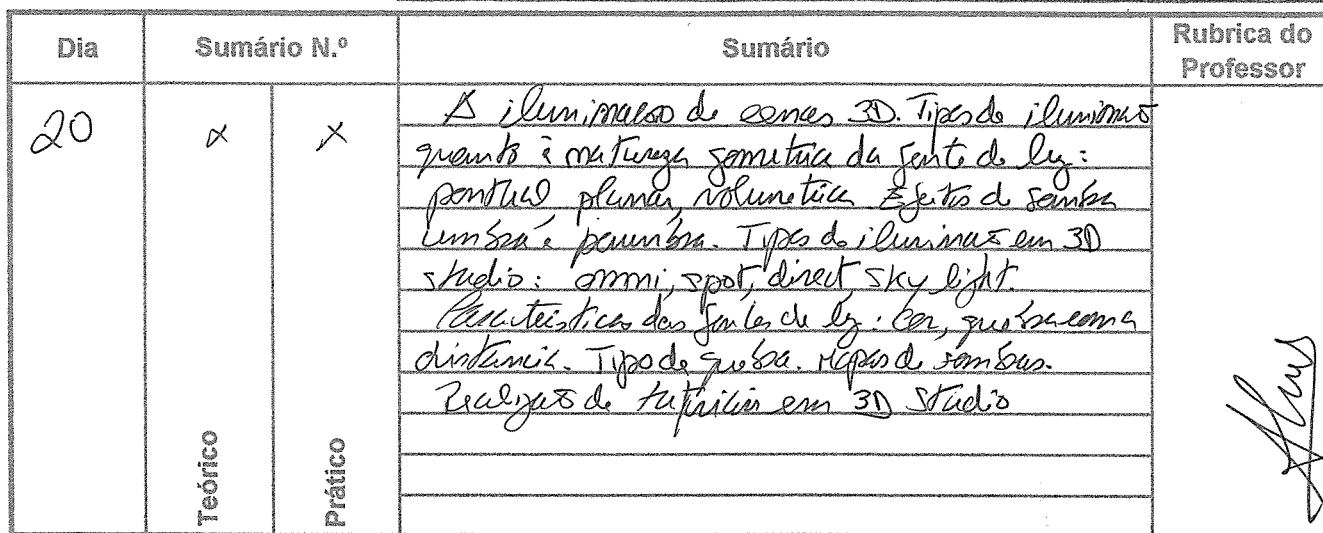 Dia Sumário N.º Sumário Rubrica do Professor
20 x x
A iluminação de cenas 3D. Tipos de iluminação
quanto à natureza geometrica da fonte de luz:
pontual planar, volumetrica Efeitos de sombra
umbra e penumbra. Tipos de iluminação em 3D
studio: omni, spot, direct sky light.
Caracteristicas das fontes de luz: cor, quebra com a
distancia. Tipo de quebra. Mapas de sombras.
Realização de tutoriais em 3D Studio
Teórico
Prático